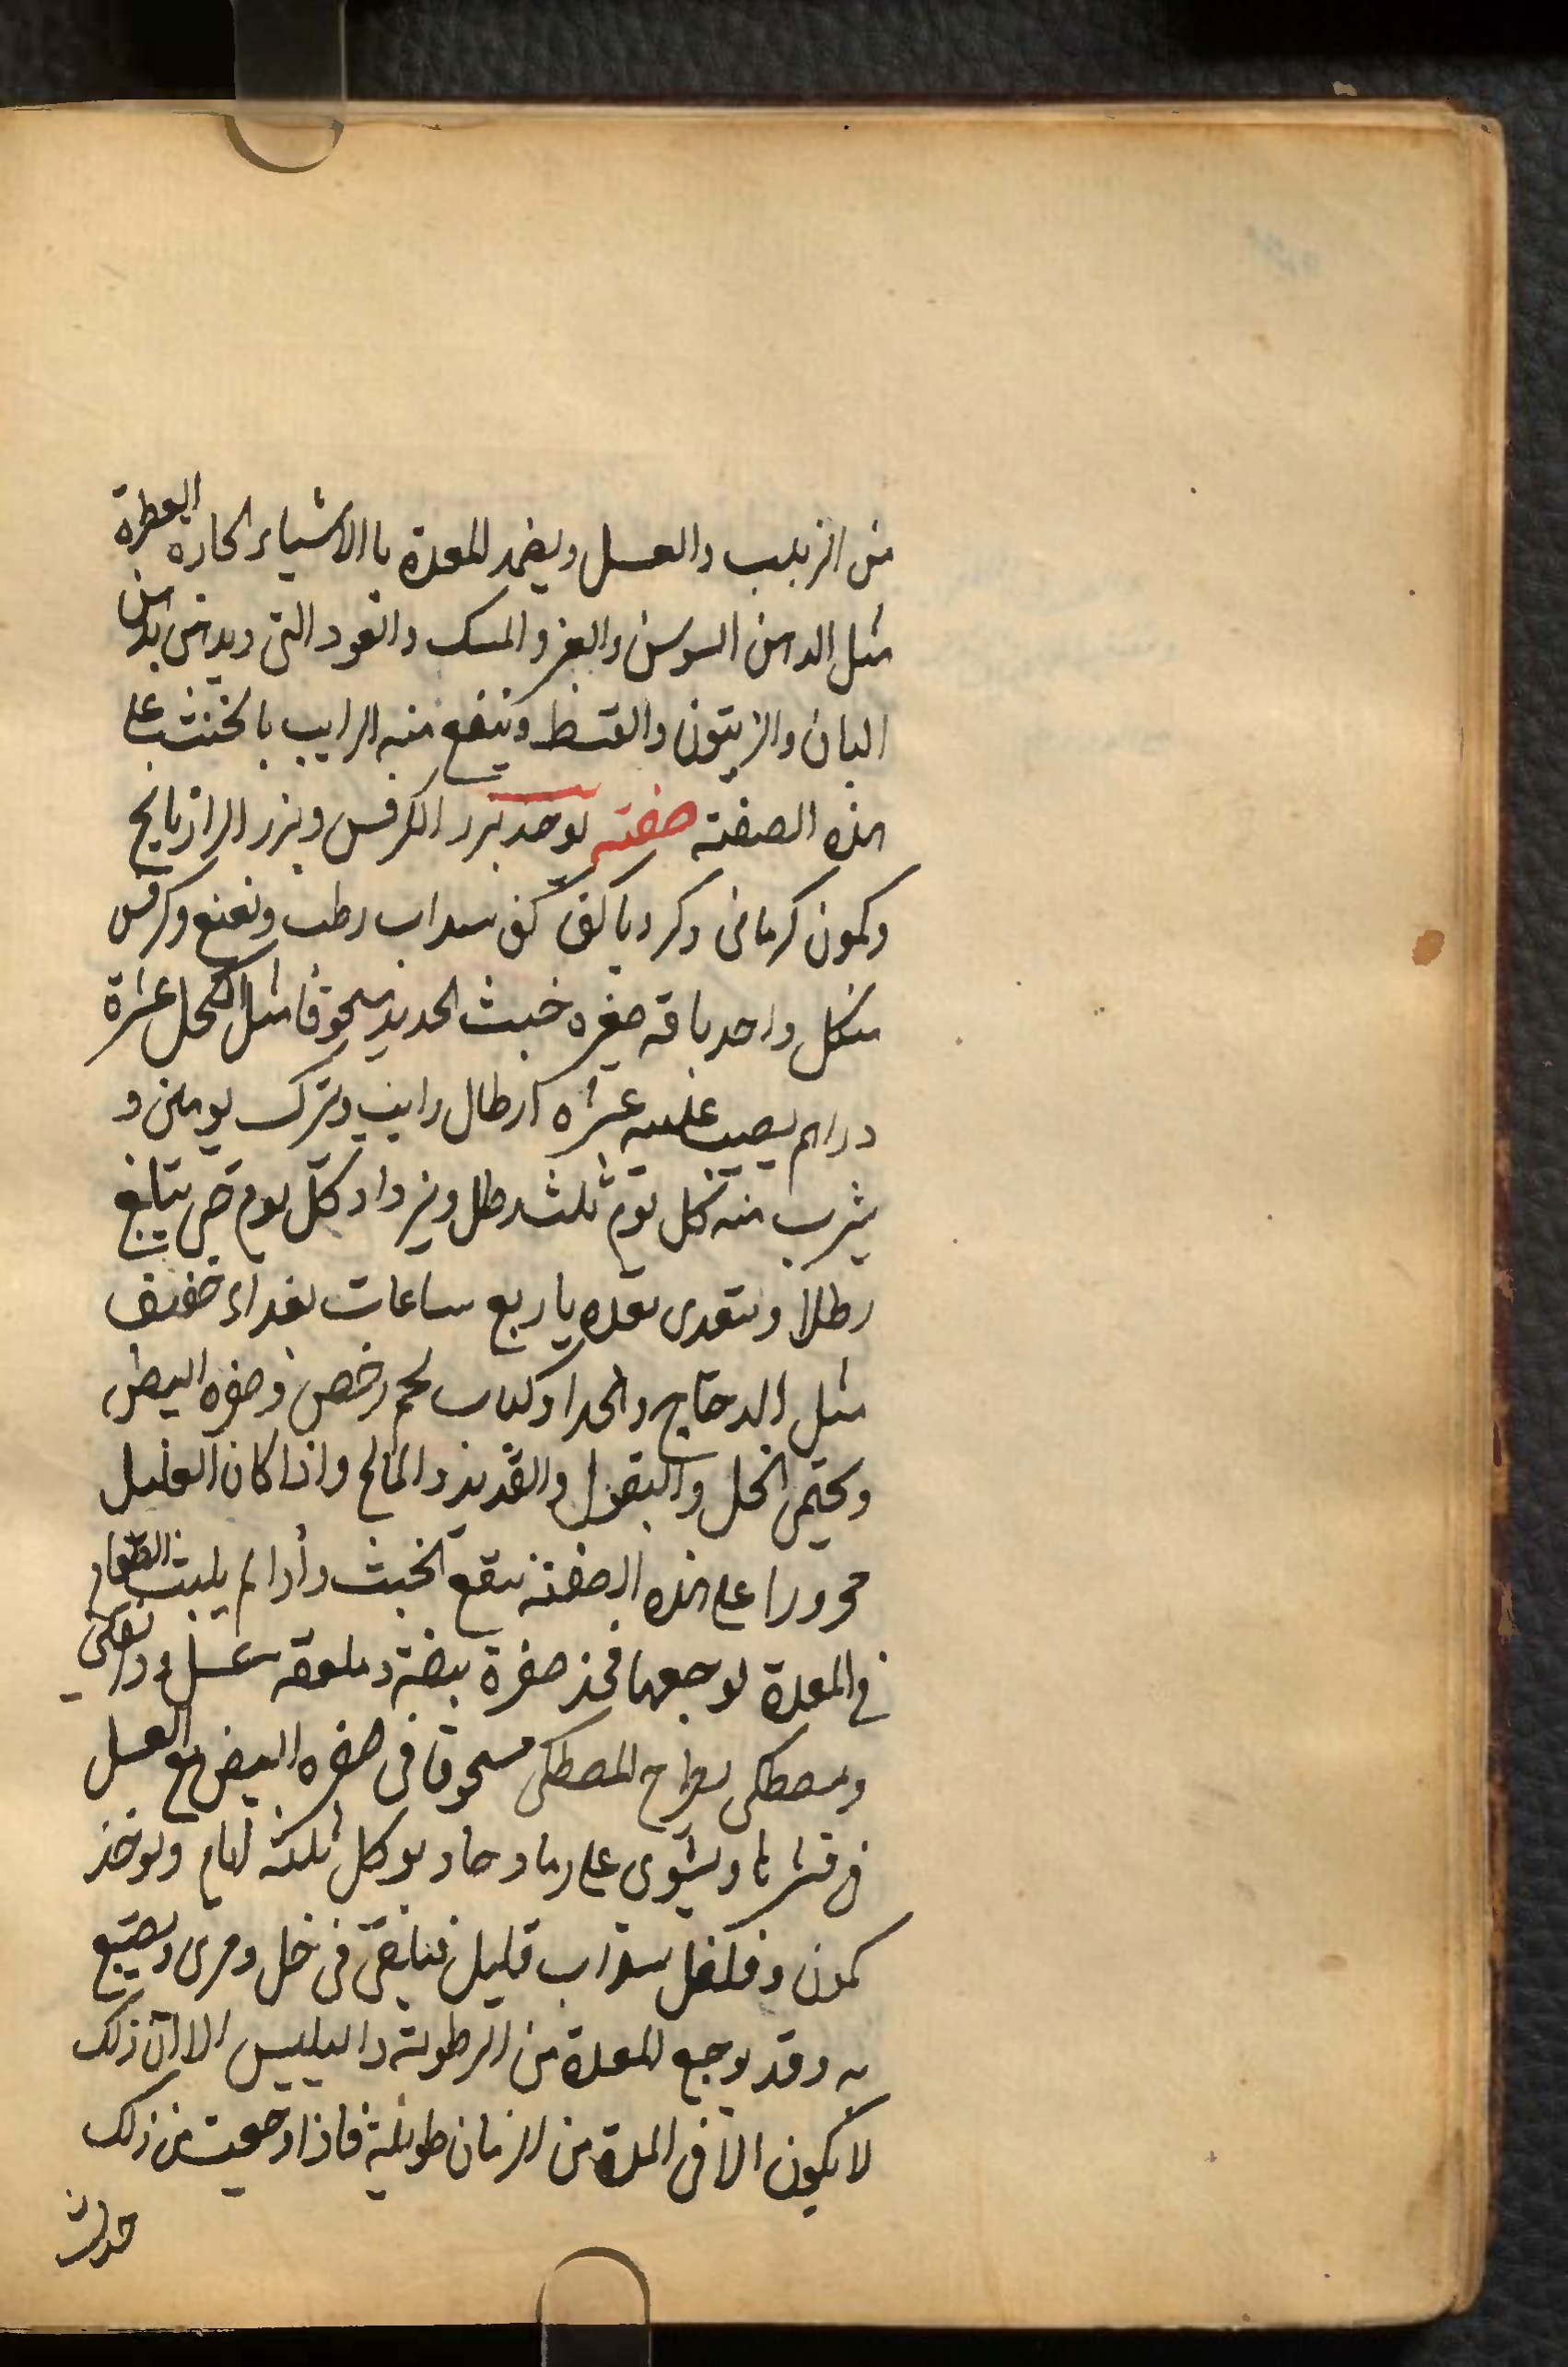 من الزبيب والعسل ويضمد المعدة بالاشياء الحاره العطرة
مثل الدهن السوسن والعنبر والمسك والعود التى ويدهن بدهن
البان والزيتون والقسط وينفع منه الرايب بالخبث على
هذه الصفته صفته يوخد بزر الكرفس وبزر الرازيانج
وكمون كرمانى وكرويا كف كف سداب رطب ونعنع وكرفس
منكل واحد باقه صغيره خبث الحديد مسحوقا مثل الكحل عشرة
دراهم يصيب عليه عشره ارطال رايب ويترك يومين و
يشرب منه كل يوم ثلث رطل ويزداد كل يوم حتى يبلغ
رطلا ويتغدى بعده باربع ساعات بغداء خفيف
مثل الدجاج والجدا وكباب لحم رخص وصفره البيض
ويحتمى الخل والبقول والقديد والمالح واذا كان العليل
محرورا على هذه الصفته ينقع الخبث واذا لم يلبث الطعام
فى المعدة لوجعها فخذ صفرة بيضة وملعقه عسل ودانقين
ومصطكى يطرح المصطكى مسحوقا فى صفره البيض مع العسل
فى قشرها ويشوى على رماد حار يوكل ثلثه ايام ويوخذ
كمون وفلفل سداب قليل فيلقى فى خل ومرى ويصبغ
به وقد يوجع المعدة من الرطوبة واليبس الا ان ذلك
لا يكون الا فى المدة من الزمان طويلة فاذا وجعت من ذلك
حدث